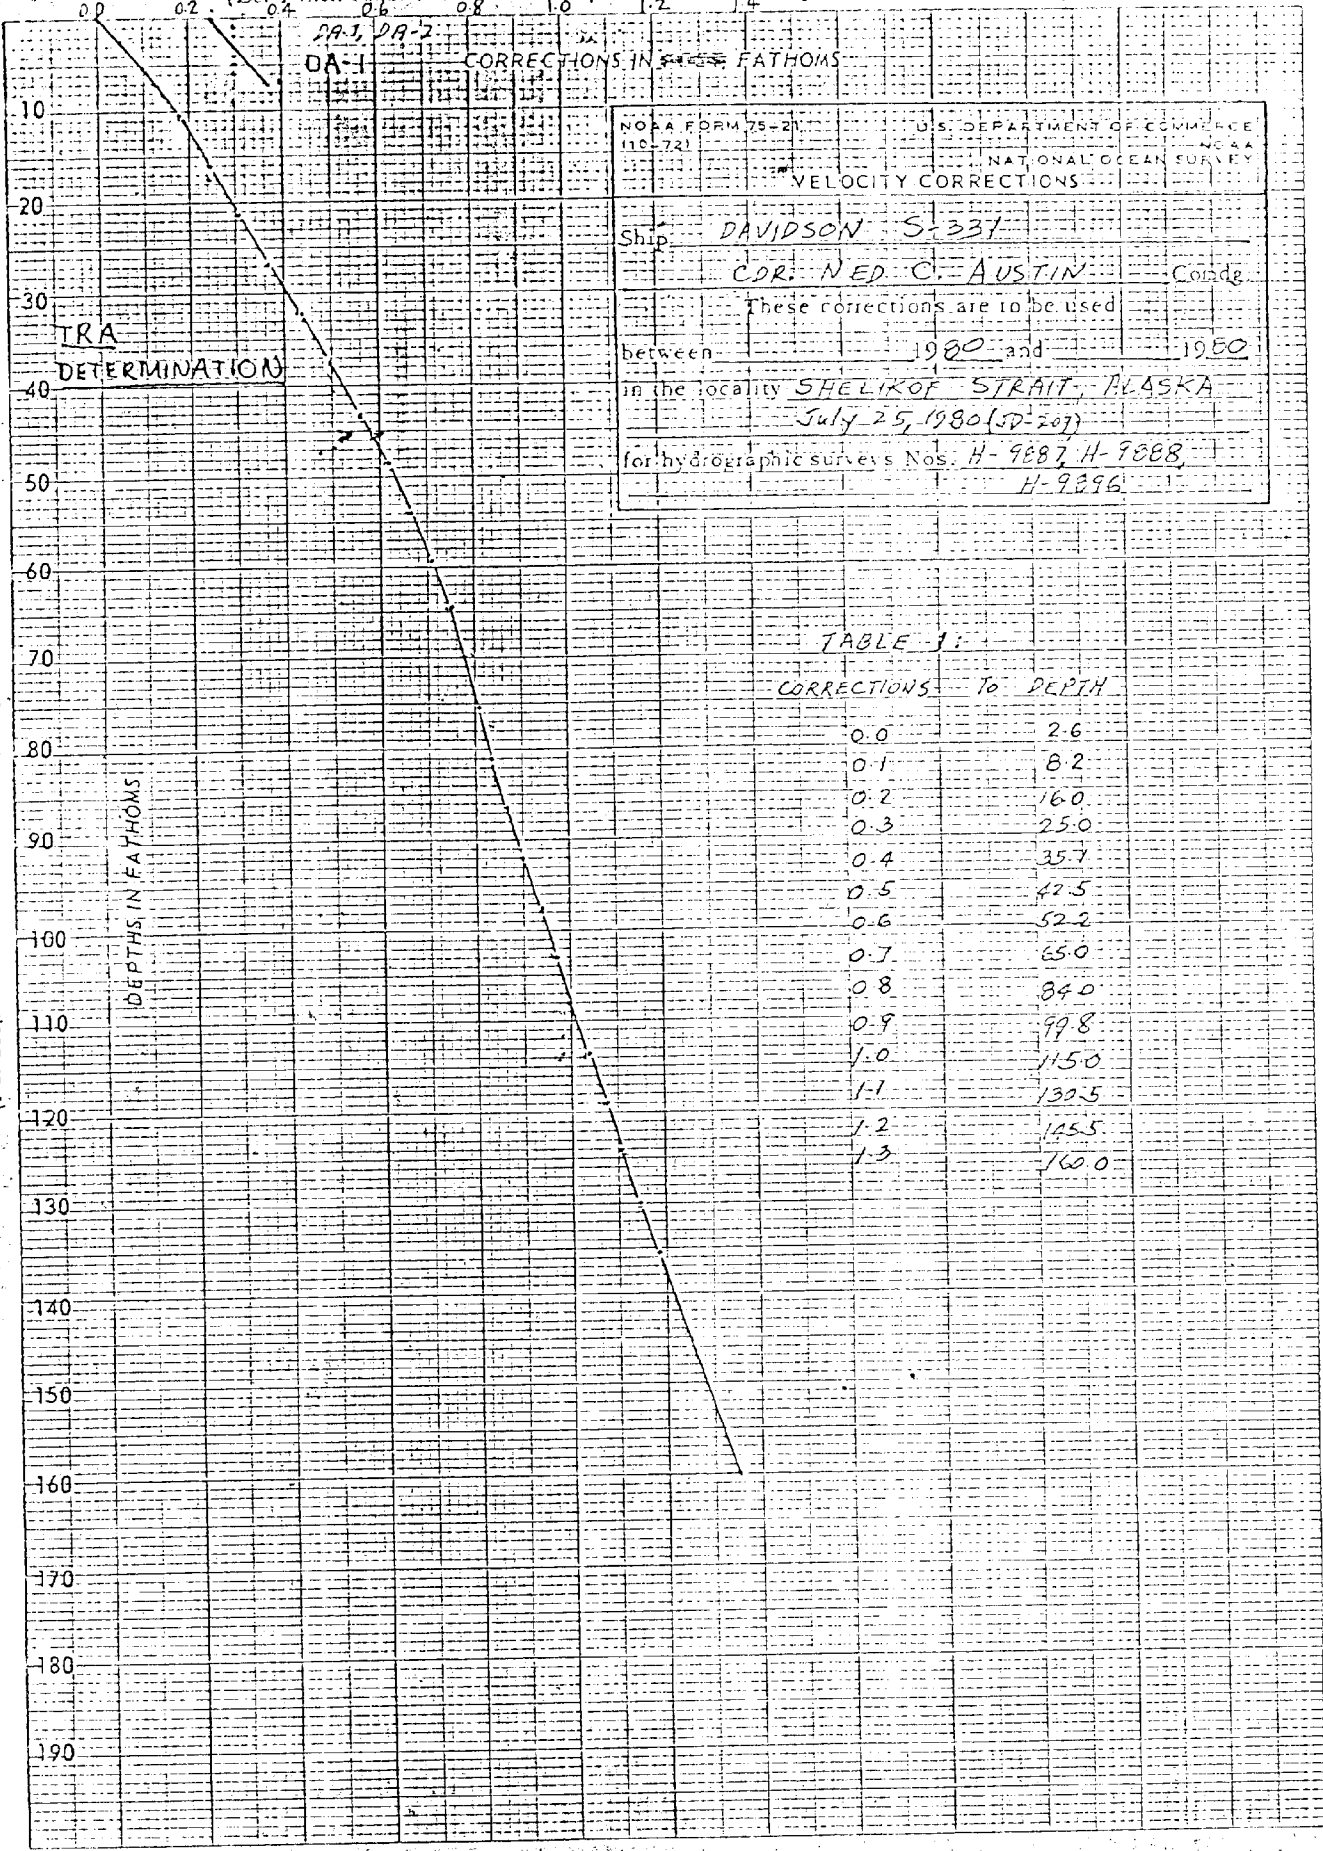 0.0 0.2 0.4 0.6 0.8 1.0 1.2 1.4
DA-1, DA-2
DA-1 CORRECTIONS IN FATHOMS
NOAA FORM 75-21 U.S. DEPARTMENT OF COMMERCE
(10-72) NOAA
NATIONAL OCEAN SURVEY
VELOCITY CORRECTIONS
Ship DAVIDSON S-331
CDR. NED C. AUSTIN Comdg.
These corrections are to be used
between 1980 and 1980
in the locality SHELIKOF STRAIT, ALASKA
July 25, 1980 (JD-207)
for hydrographic surveys Nos. H-9887, H-9888,
H-9896
TRA
DETERMINATION
DEPTHS IN FATHOMS
10
20
30
40
50
60
70
80
90
100
110
120
130
140
150
160
170
180
190
TABLE 1:
CORRECTIONS TO DEPTH
0.0 2.6
0.1 8.2
0.2 16.0
0.3 25.0
0.4 35.7
0.5 42.5
0.6 52.2
0.7 65.0
0.8 84.0
0.9 99.8
1.0 115.0
1.1 130.5
1.2 145.5
1.3 160.0